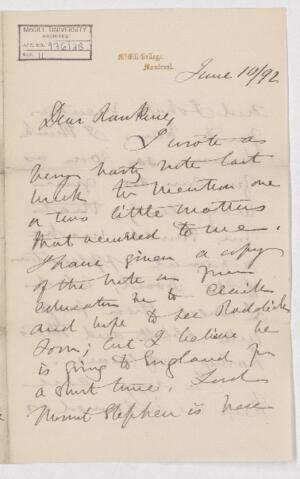 McGILL UNIVERSITY
ARCHIVES
ACC. NO.
REF. 11
McGill College,
Montreal.
June 10/92
Dear Rankine,
I wrote a
very hasty note last
week to mention one
or two little matters
that occurred to me.
I have given a copy
of the note on
education to Clark
and hope to see Roddick
soon; but I believe he
is going to England for
a short time. Lord
Mount Stephen is here